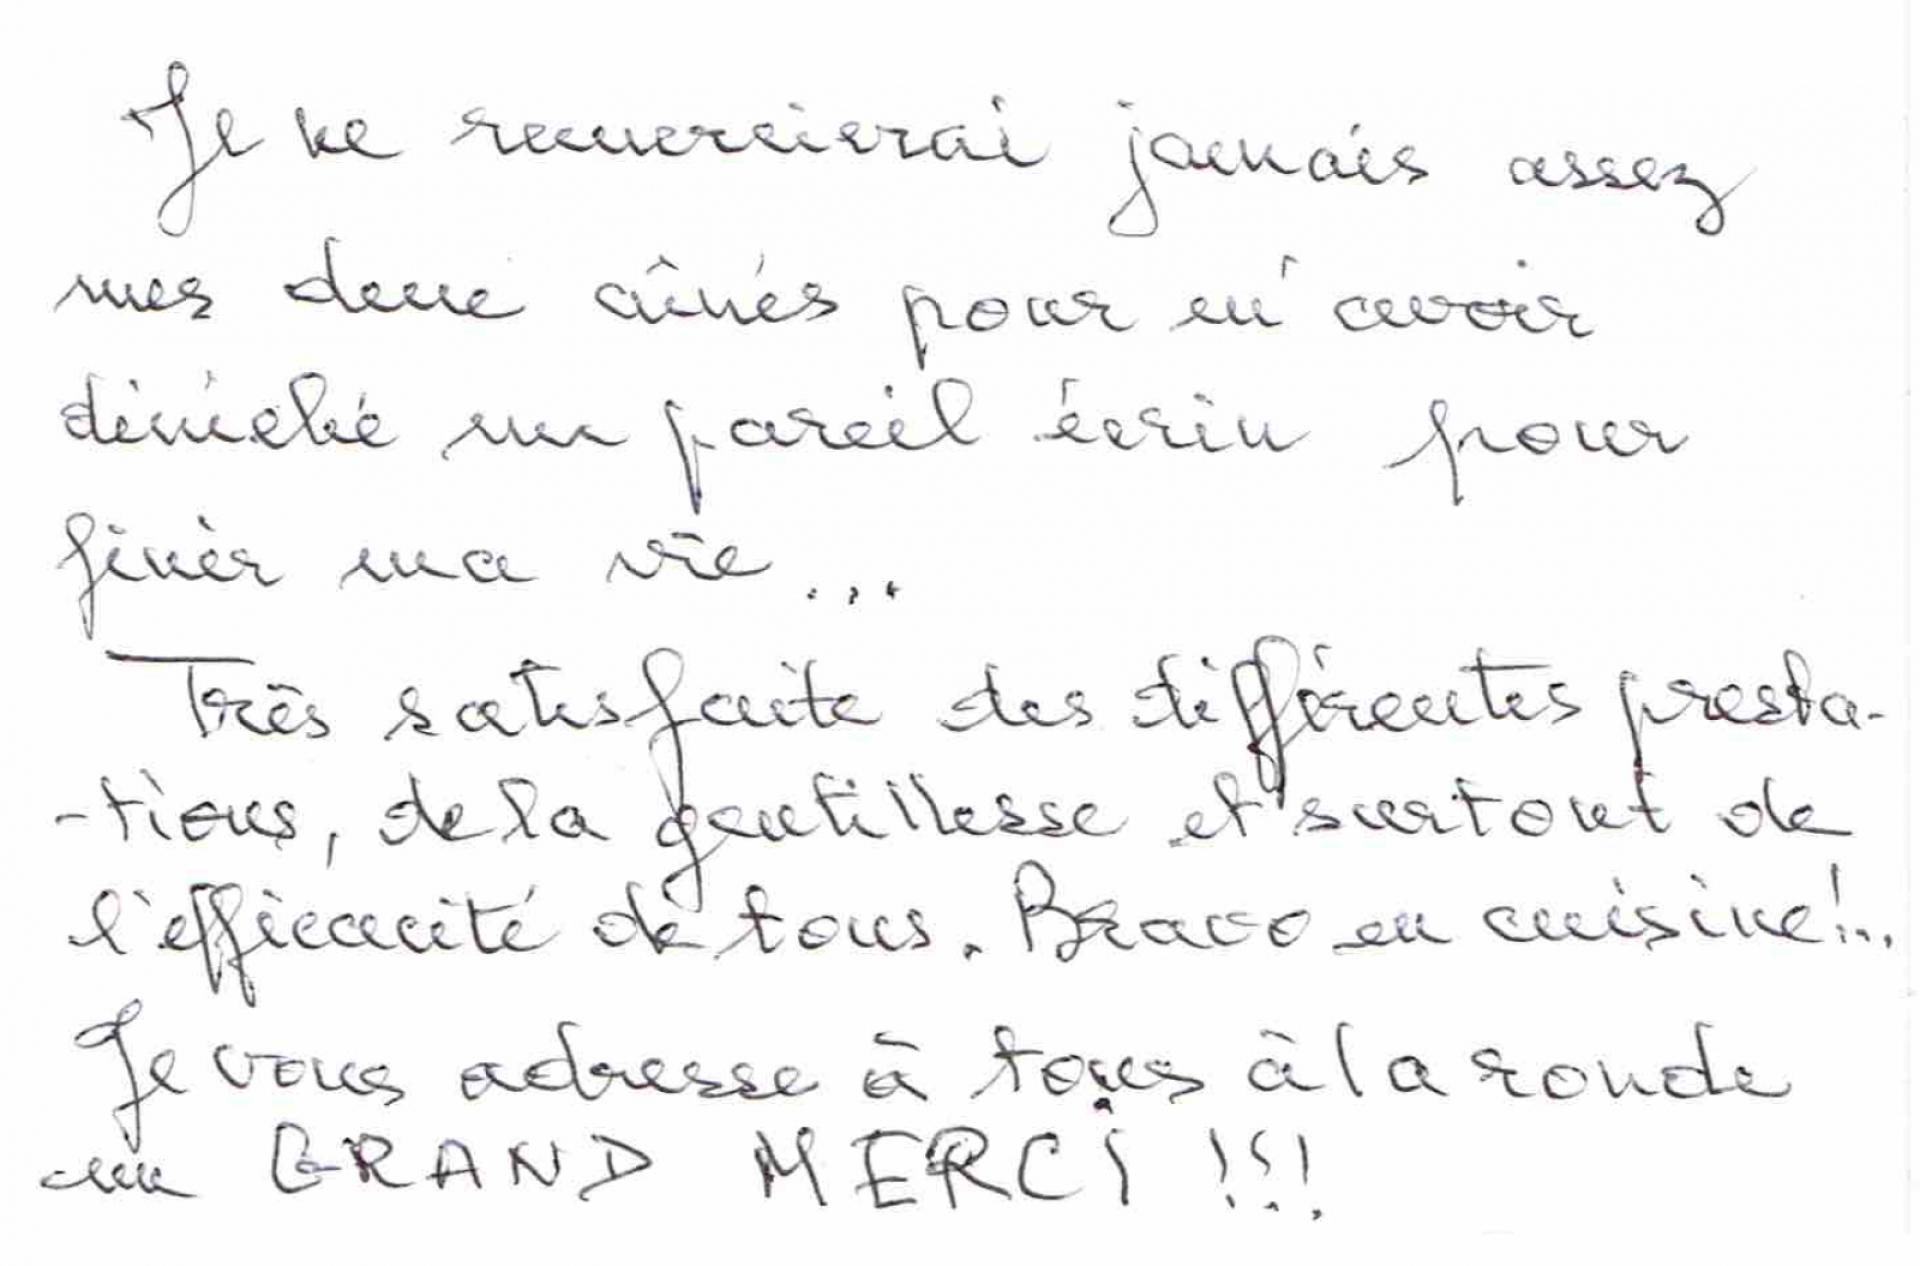 Je ne remercierai jamais assez
mes deux aînés pour m'avoir
déniché un pareil écrin pour
finir ma vie...
Très satisfaite des différentes presta-
-tions, de la gentillesse et surtout de
l'efficacité de tous. Bravo en cuisine!..
Je vous adresse à tous à la ronde
un GRAND MERCi !!!